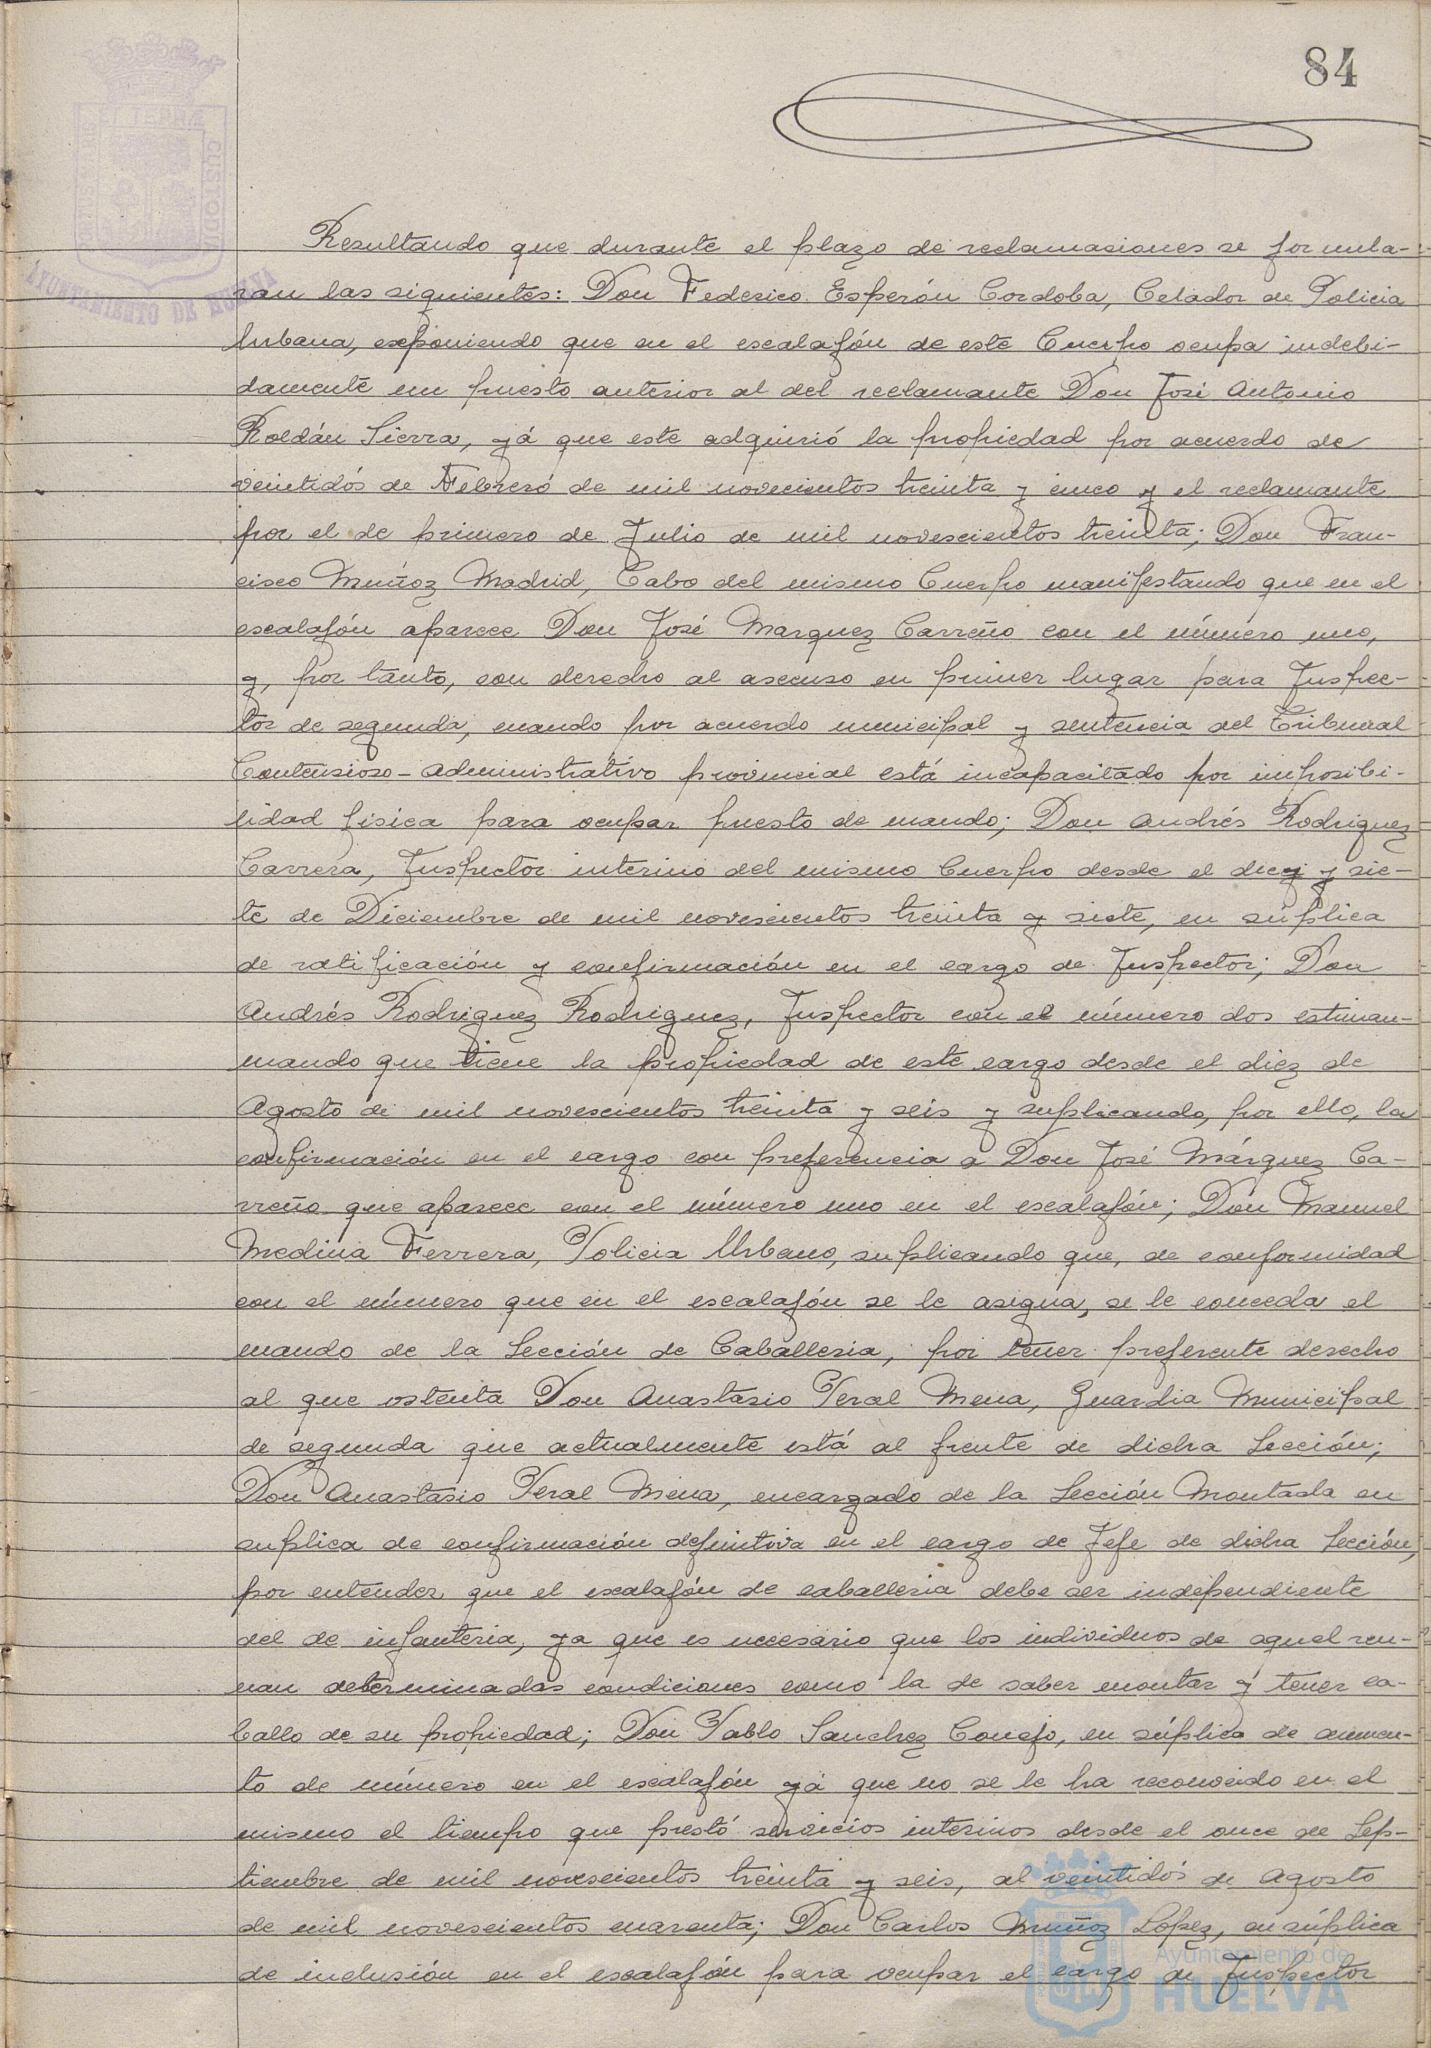 84
PORTUS MARIS ET TERRÆ CUSTODIA
AYUNTAMIENTO DE HUELVA
Resultando que durante el plazo de reclamasiones se formula-
ran las siguientes: Don Federico Esperón Cordoba, Celador de Policia
Urbana, exponiendo que en el escalafón de este Cuerpo ocupa indebi-
damente un puesto anterior al del reclamante Don José Antonio
Roldán Sierra, yá que este adquirió la propiedad por acuerdo de
veintidós de Febrero de mil novecientos treinta y cinco y el reclamante
por el de primero de Julio de mil novescientos treinta; Don Fran-
cisco Muñoz Madrid, Cabo del mismo Cuerpo manifestando que en el
escalafón aparece Don José Marquez Carreño con el número uno,
y, por tanto, con derecho al ascenso en primer lugar para Inspec-
tor de segunda, cuando por acuerdo municipal y sentencia del Tribunal
Contensioso-administrativo provincial está incapacitado por imposibi-
lidad fisica para ocupar puesto de mando; Don Andrés Rodriguez
Carrera, Inspector interino del mismo Cuerpo desde el diez y sie-
te de Diciembre de mil novescientos treinta y siete, en súplica
de ratificación y confirmación en el cargo de Inspector; Don
Andrés Rodriguez Rodriguez, Inspector con el número dos estiman-
mando que tiene la propiedad de este cargo desde el diez de
Agosto de mil novescientos treinta y seis y suplicando, por ello, la
confirmación en el cargo con preferencia a Don José Márquez Ca-
rreño que aparece con el número uno en el escalafón; Don Manuel
Medina Ferrera, Policia Urbano, suplicando que, de conformidad
con el número que en el escalafón se le asigna, se le conceda el
mando de la Sección de Caballeria, por tener preferente derecho
al que ostenta Don Anastasio Peral Mena, Guardia Municipal
de segunda que actualmente está al frente de dicha Sección;
Don Anastasio Peral Mena, encargado de la Sección Montada en
suplica de confirmación definitiva en el cargo de Jefe de dicha Sección,
por entender que el escalafón de caballeria debe ser independiente
del de infanteria, ya que es necesario que los individuos de aquel reu-
nan determinadas condiciones como la de saber montar y tener ca-
ballo de su propiedad; Don Pablo Sanchez Conejo, en súplica de aumen-
to de número en el escalafón yá que no se le ha reconocido en el
mismo el tiempo que prestó servicios interinos desde el once de Sep-
tiembre de mil novescientos treinta y seis, al veintidós de Agosto
de mil novescientos cuarenta; Don Carlos Muñoz Lopez, en súplica
de inclusión en el escalafón para ocupar el cargo de Inspector
Ayuntamiento de
HUELVA